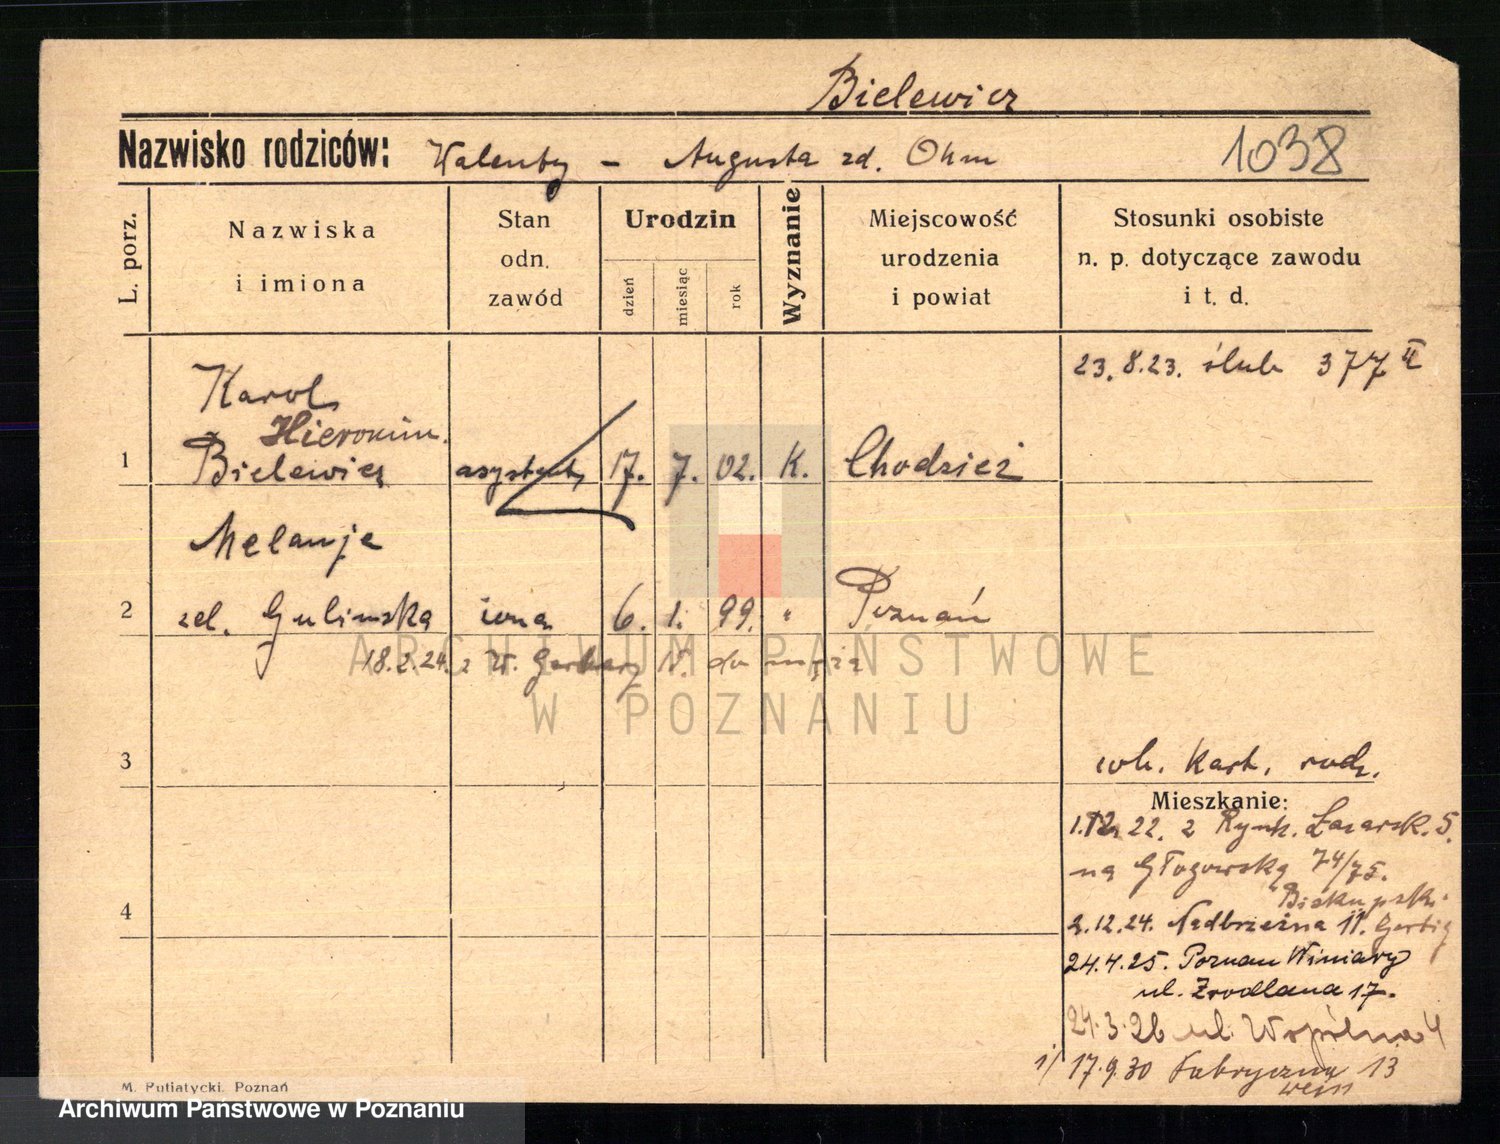 Bielewicz
Nazwisko rodziców: Walenty - Augusta zd. Ohm 1038
L. porz. Nazwiska i imiona Stan odn. zawód Urodzin dzień miesiąc rok Wyznanie Miejscowość urodzenia i powiat Stosunki osobiste n. p. dotyczące zawodu i t. d.
23.8.23. ślub 377 II
Karol
Hieronim.
1 Bielewicz asystent 17. 7. 02. K. Chodzież
Melanja
2 zd. Gulińska żona 6. 1. 99. " Poznań
18.2.24. z W. Garbary do męża
ARCHIWUM PAŃSTWOWE
W POZNANIU
3
wh. Kart. rodz.
Mieszkanie:
1.12. 22. z Rynk. Łazarsk. 5.
na Głogowską 74/75.
4
2.12.24. Nadbrzeżna 11.
24.4.25. Poznan Winiary
ul. Zrodlana 17.
24.3.26 ul. Wspólna 4
1/ 17.9.30 Fabryczna 13
M. Putiatycki. Poznań
Archiwum Państwowe w Poznaniu